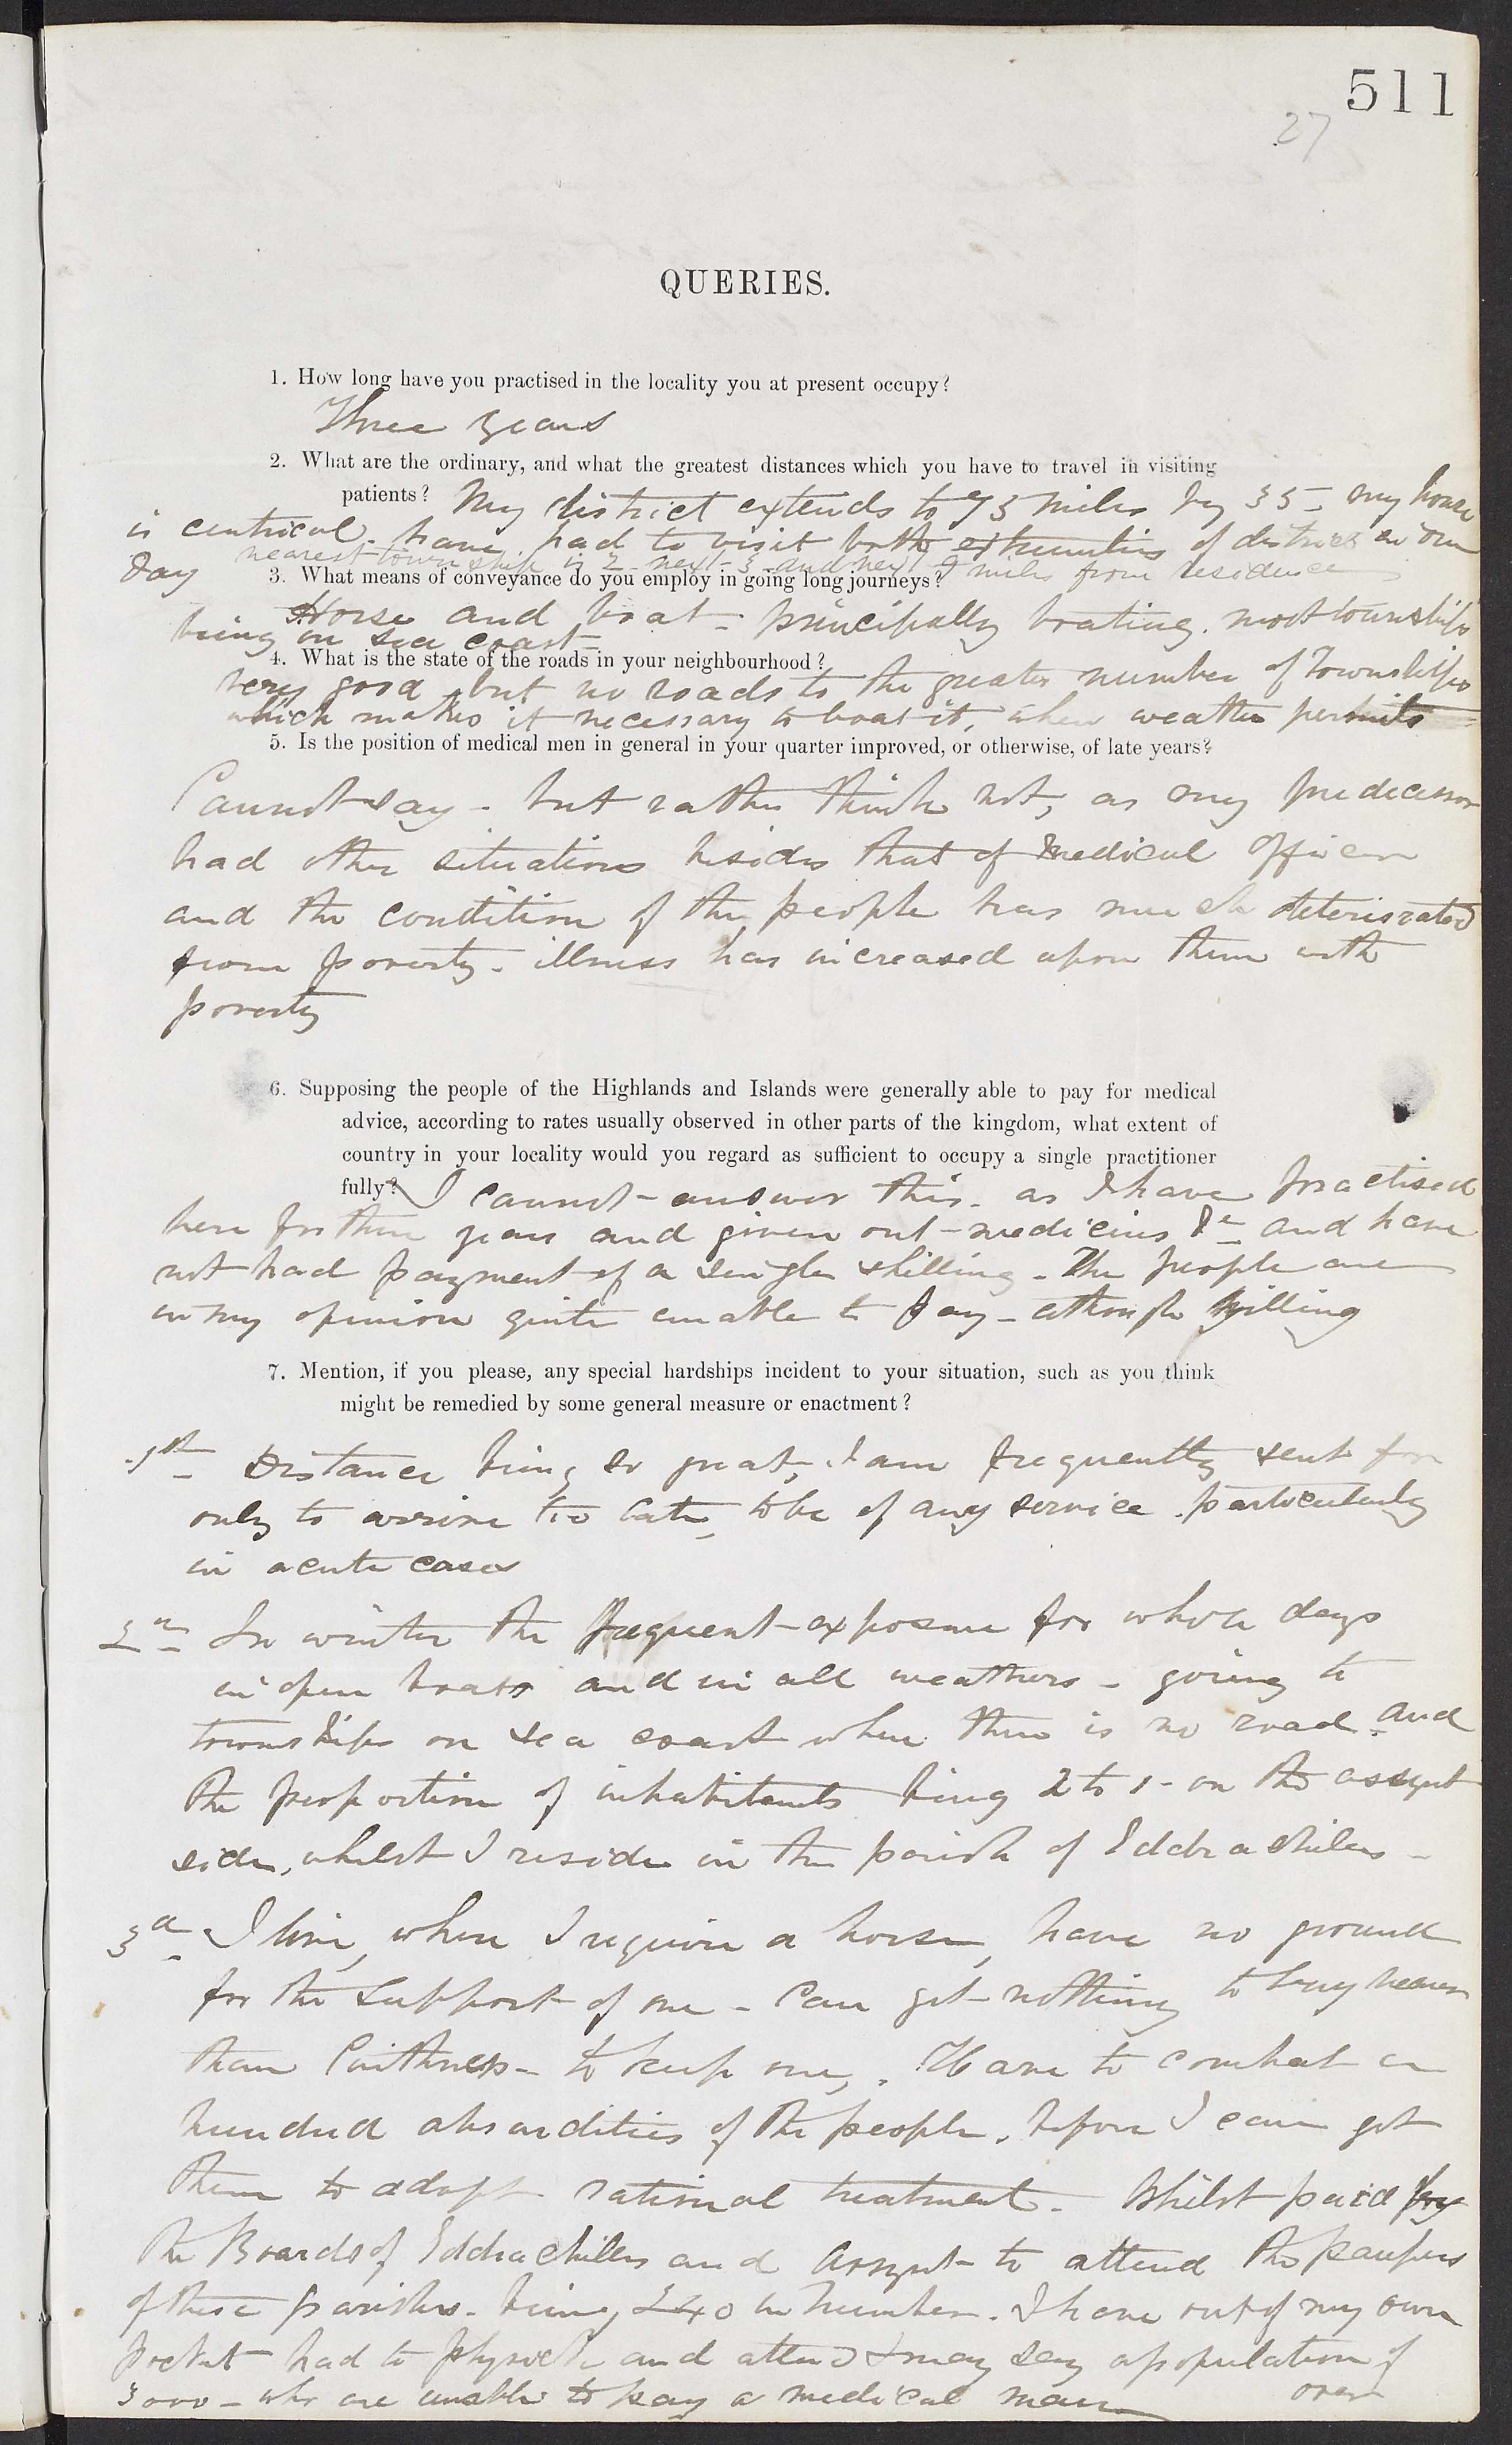 511
27
QUERIES.
1. How long have you practised in the locality you at present occupy?
Three years
2. What are the ordinary, and what the greatest distances which you have to travel in visiting
patients? My district extends to 73 miles by 35 - my house
is centrical - have had to visit both extremities of district in one
day nearest township is 2 - next - 3 - and next miles from residence
3. What means of conveyance do you employ in going long journeys?
Horse and boat - principally boating. most townships
being on sea coast -
4. What is the state of the roads in your neighbourhood?
very good but no roads to the greater number of Townships
which makes it necessary to boat it, when weather permits
5. Is the position of medical men in general in your quarter improved, or otherwise, of late years?
Cannot say - but rather think not, as my predecessor
had other situations besides that of Medical Officer
and the condition of the people has much deteriorated
from poverty - illness has increased upon them with
poverty
6. Supposing the people of the Highlands and Islands were generally able to pay for medical
advice, according to rates usually observed in other parts of the kingdom, what extent of
country in your locality would you regard as sufficient to occupy a single practitioner
fully? I cannot answer this - as I have practised
here for three years and given out medicines &c and have
not had payment of a single shilling - The people are
in my opinion quite unable to pay - although willing
7. Mention, if you please, any special hardships incident to your situation, such as you think
might be remedied by some general measure or enactment?
1st Distance being so great, I am frequently sent for
only to arrive too late, to be of any service. particularly
in acute cases
2n In winter the frequent exposure for whole days
in open boats and in all weathers - going to
townships on sea coast where there is no road - and
the proportion of inhabitants being 2 to 1 - on the assynt
side, whilst I reside in the parish of Eddrachiles -
3d I live, where I require a horse, have no ground
for the support of one - Can get nothing to buy nearer
than Caithness - to keep one,. Have to combat a
hundred absurdities of the people, before I can get
them to adopt rational treatment - Whilst paid by
the Boards of Eddrachiles and Assynt to attend the paupers
of these parishes - being 240 in number - I have out of my own
pocket had to physick and attend I may say a population of
3000 - who are unable to pay a medical man
over